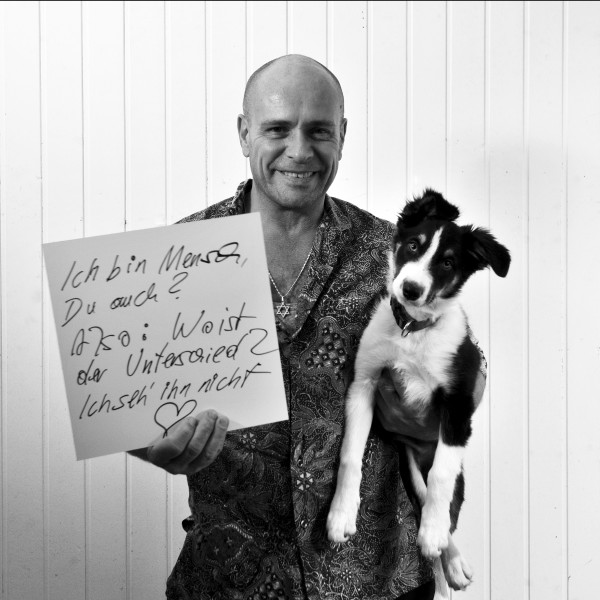 Ich bin Mensch,
Du auch?
Also: Wo ist
der Unterschied?
Ich seh' ihn nicht